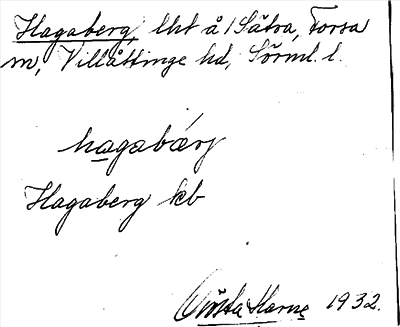 Hagaberg, lht å 1 Sätra, Torsa
sn, Villåttinge hd, Sörml. l.
hagabærj
Hagaberg kb
Gösta Harne 1932.